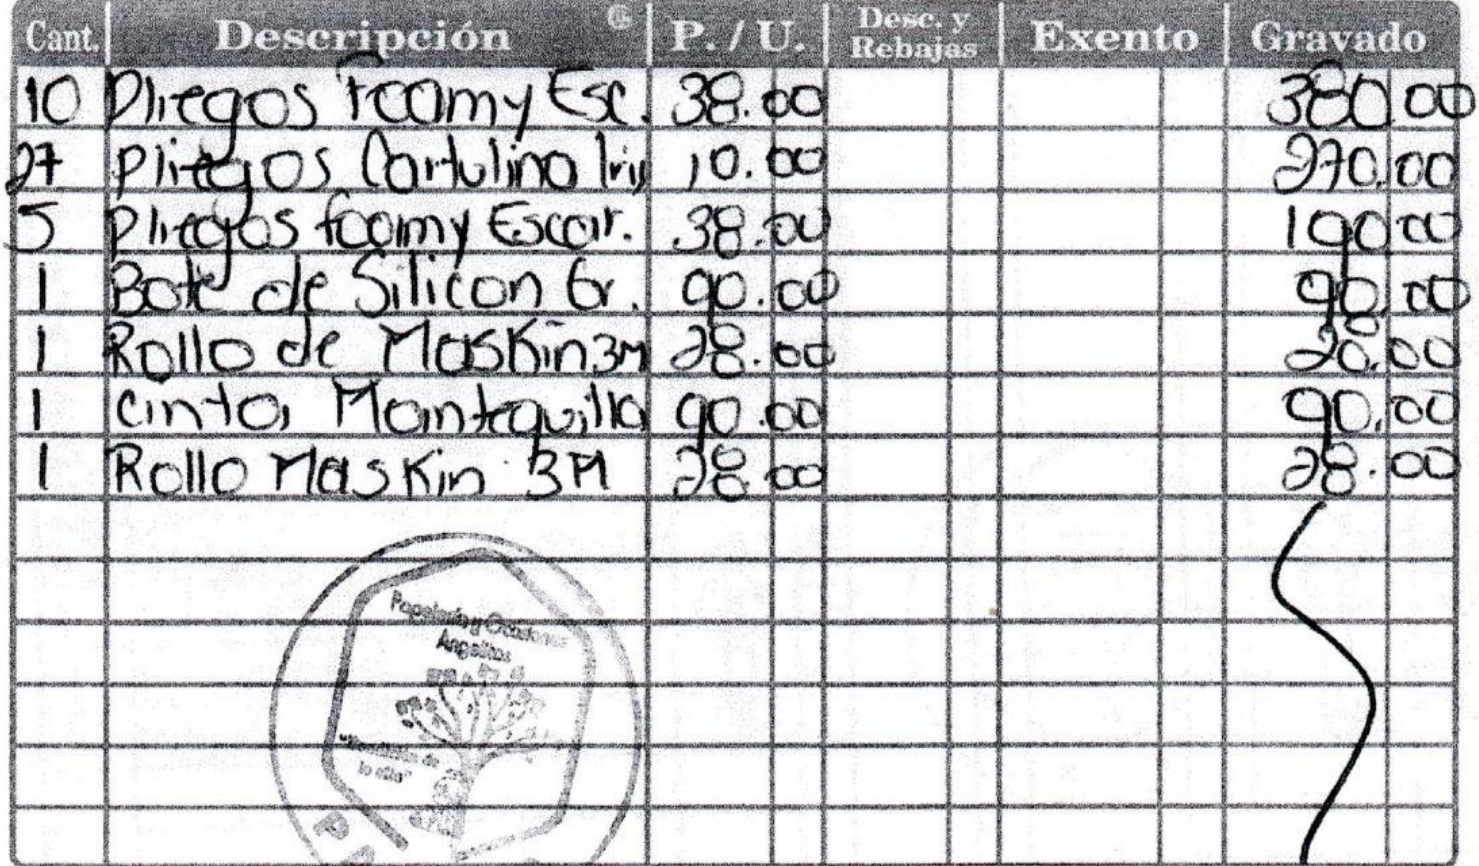 Cant. Descripción P. / U. Desc. y Rebajas Exento Gravado
10 Pliegos Foamy Esc. 38.00 380.00
27 Pliegos Cartulina Iris 10.00 270.00
5 Pliegos foamy Escar. 38.00 190.00
1 Bote de Silicon Gr. 90.00 90.00
1 Rollo de Maskin 3M 28.00 28.00
1 cinta Mantequilla 90.00 90.00
1 Rollo Maskin 3M 28.00 28.00
Papelería y Creaciones
Angelitos